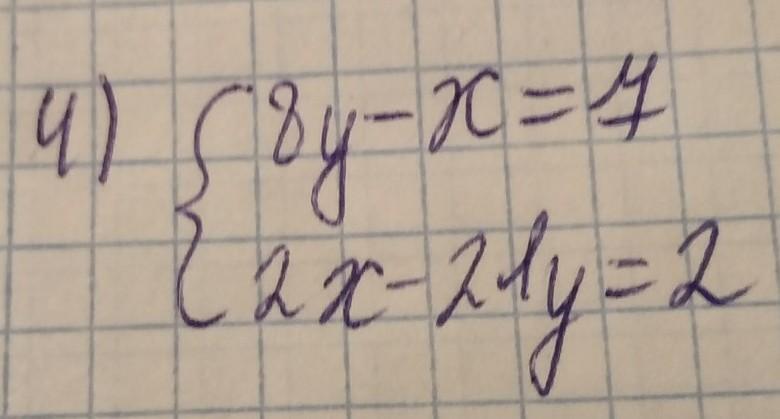 4) { 8y - x = 7
2x - 21y = 2